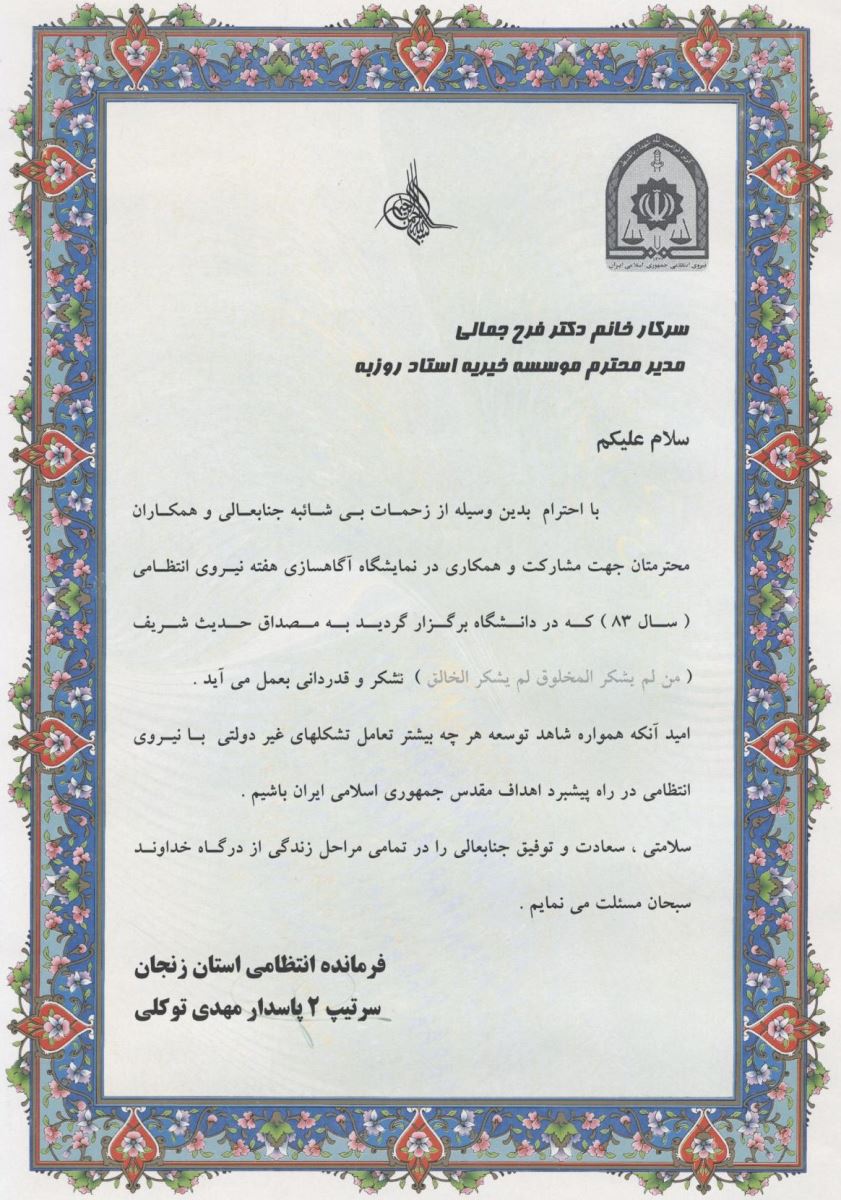 نیروی انتظامی جمهوری اسلامی ایران
سرکار خانم دکتر فرح جمالی
مدیر محترم موسسه خیریه استاد روزبه
سلام علیکم
با احترام بدین وسیله از زحمات بی شائبه جنابعالی و همکاران
محترمتان جهت مشارکت و همکاری در نمایشگاه آگاهسازی هفته نیروی انتظامی
( سال ۸۳ ) که در دانشگاه برگزار گردید به مصداق حدیث شریف
( من لم یشکر المخلوق لم یشکر الخالق ) تشکر و قدردانی بعمل می آید .
امید آنکه همواره شاهد توسعه هر چه بیشتر تعامل تشکلهای غیر دولتی با نیروی
انتظامی در راه پیشبرد اهداف مقدس جمهوری اسلامی ایران باشیم .
سلامتی ، سعادت و توفیق جنابعالی را در تمامی مراحل زندگی از درگاه خداوند
سبحان مسئلت می نمایم .
فرمانده انتظامی استان زنجان
سرتیپ ۲ پاسدار مهدی توکلی